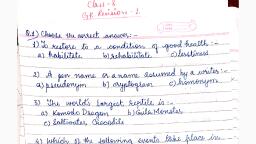 Class - 8
GK Revision - 2
Q.1) Choose the correct answer: -
1) To restore to a condition of good health :-
a) habilitate b) rehabilitate c) lerstiness
2) A pen name or a name assumed by a writer :-
a) pseudonym b) cryptogram c) homonym
3) The world's largest reptile is :-
a) Komodo Dragon b) Gila Monster
c) Saltwater Crocodile
4) Which of the following events take place in